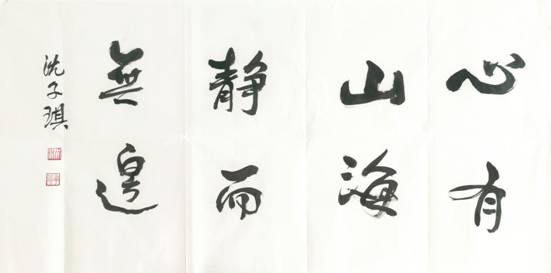 心有
山海
静而
無邊
沈子琪